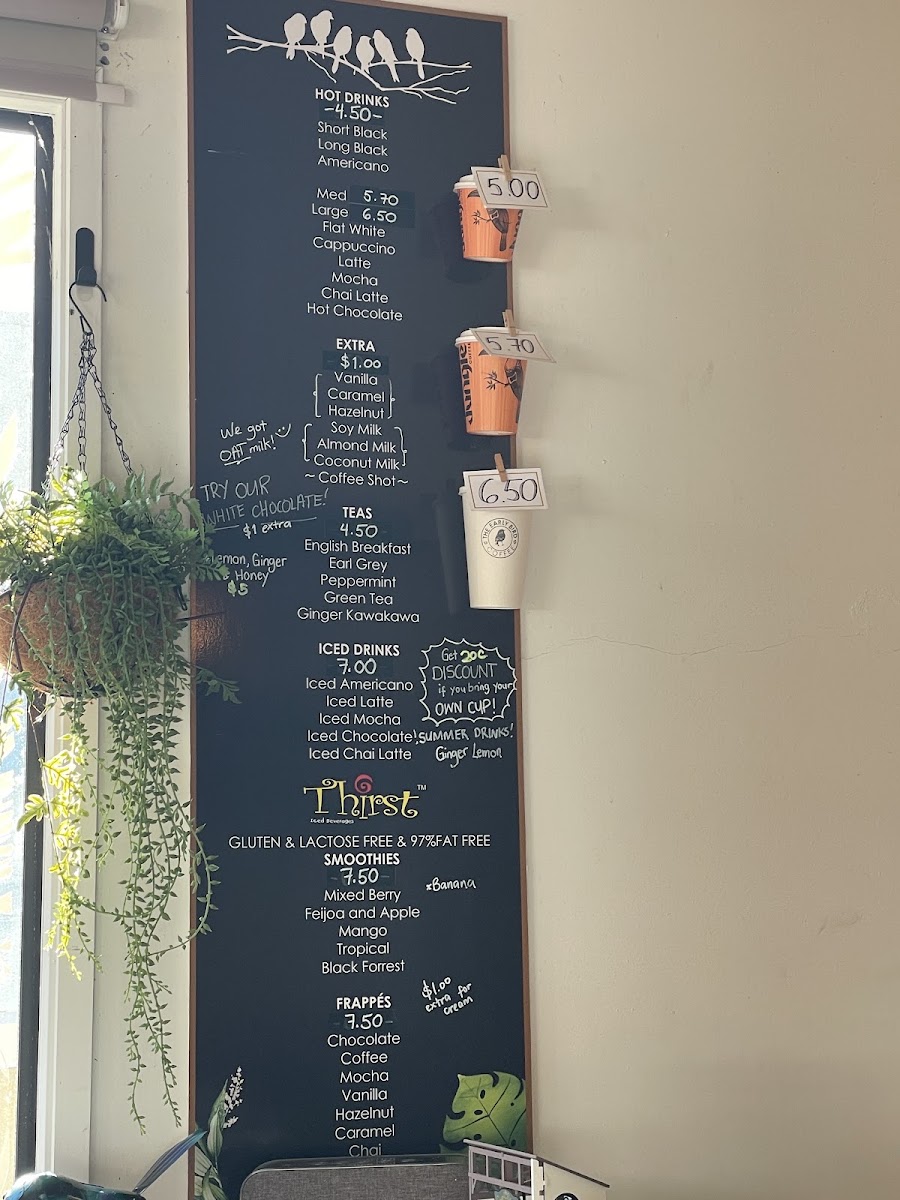 HOT DRINKS
-4.50-
Short Black
Long Black
Americano
Med 5.70
Large 6.50
Flat White
Cappuccino
Latte
Mocha
Chai Latte
Hot Chocolate
5.00
5.70
6.50
THE EARLY BIRD
COFFEE
EXTRA
- $1.00
Vanilla
Caramel
Hazelnut
Soy Milk
Almond Milk
Coconut Milk
~Coffee Shot~
We got
OAT milk!
TRY OUR
WHITE CHOCOLATE!
$1 extra
Lemon, Ginger
& Honey
$5
TEAS
4.50
English Breakfast
Earl Grey
Peppermint
Green Tea
Ginger Kawakawa
ICED DRINKS
7.00
Iced Americano
Iced Latte
Iced Mocha
Iced Chocolate
Iced Chai Latte
Get 20c
DISCOUNT
if you bring your
OWN CUP!
SUMMER DRINKS!
Ginger Lemon
Thirst™
Iced Beverages
GLUTEN & LACTOSE FREE & 97%FAT FREE
SMOOTHIES
-7.50-
Mixed Berry
Feijoa and Apple
Mango
Tropical
Black Forrest
xBanana
FRAPPÉS
-7.50-
Chocolate
Coffee
Mocha
Vanilla
Hazelnut
Caramel
Chai
$1.00
extra for
cream